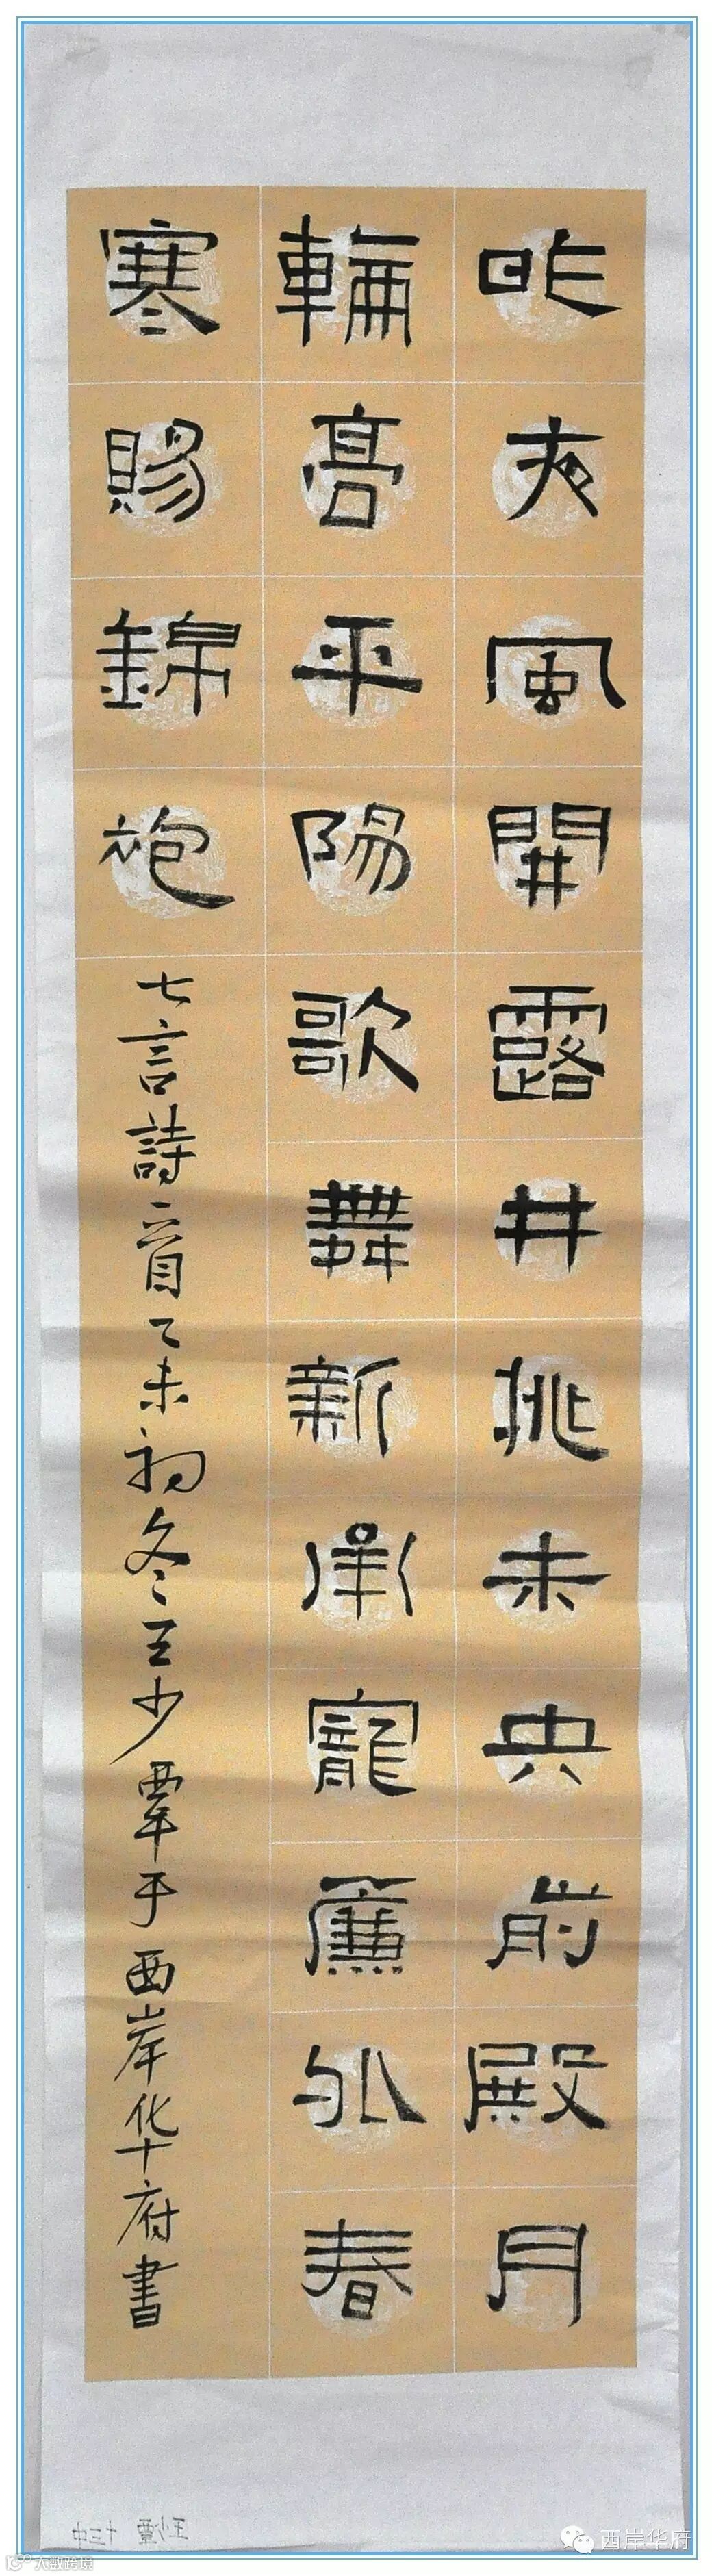 昨夜風開露井桃未央前殿月
輪高平陽歌舞新承寵簾外春
寒賜錦袍
七言詩一首乙未初冬王少覃于西岸华府書
西岸华府
大数跨境